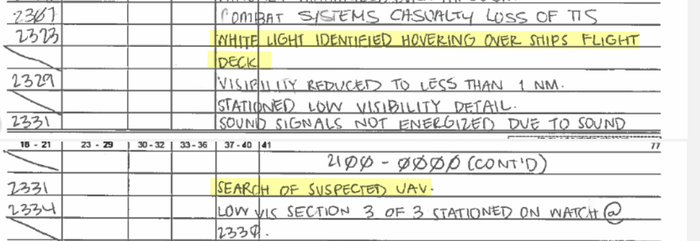 2307 COMBAT SYSTEMS CASUALTY LOSS OF TIS
2323 WHITE LIGHT IDENTIFIED HOVERING OVER SHIPS FLIGHT
DECK
2329 VISIBILITY REDUCED TO LESS THAN 1 NM.
STATIONED LOW VISIBILITY DETAIL.
2331 SOUND SIGNALS NOT ENERGIZED DUE TO SOUND
18 - 21 23 - 29 30 - 32 33 - 36 37 - 40 41 77
21ØØ - ØØØØ (CONT'D)
2331 SEARCH OF SUSPECTED UAV.
2334 LOW VIS SECTION 3 OF 3 STATIONED ON WATCH @
233Ø.